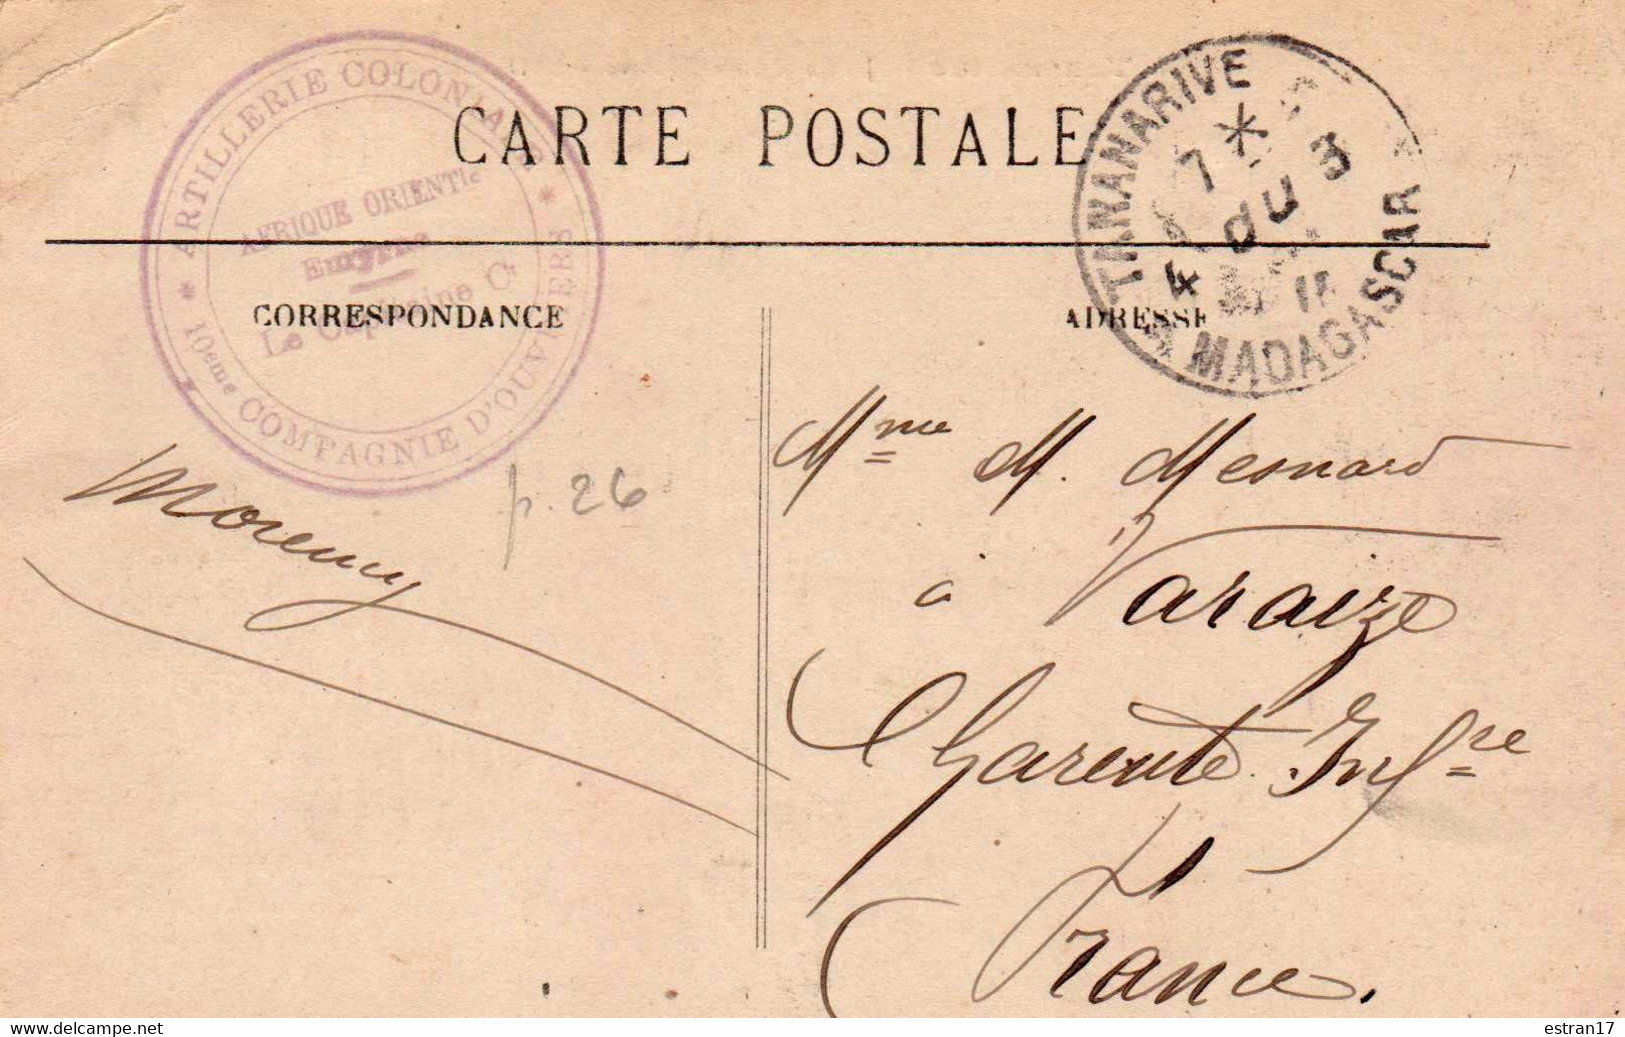 CARTE POSTALE
* ARTILLERIE COLONIALE *
10eme COMPAGNIE D'OUVRIERS
AFRIQUE ORIENTle
Emyrne
Le Capitaine Ct
TANANARIVE
7 *
4 du 3
11
MADAGASCAR
CORRESPONDANCE
ADRESSE
p. 26
Mme M. Mesnard
à Varaize
Charente Infre
France.
www.delcampe.net
estran17